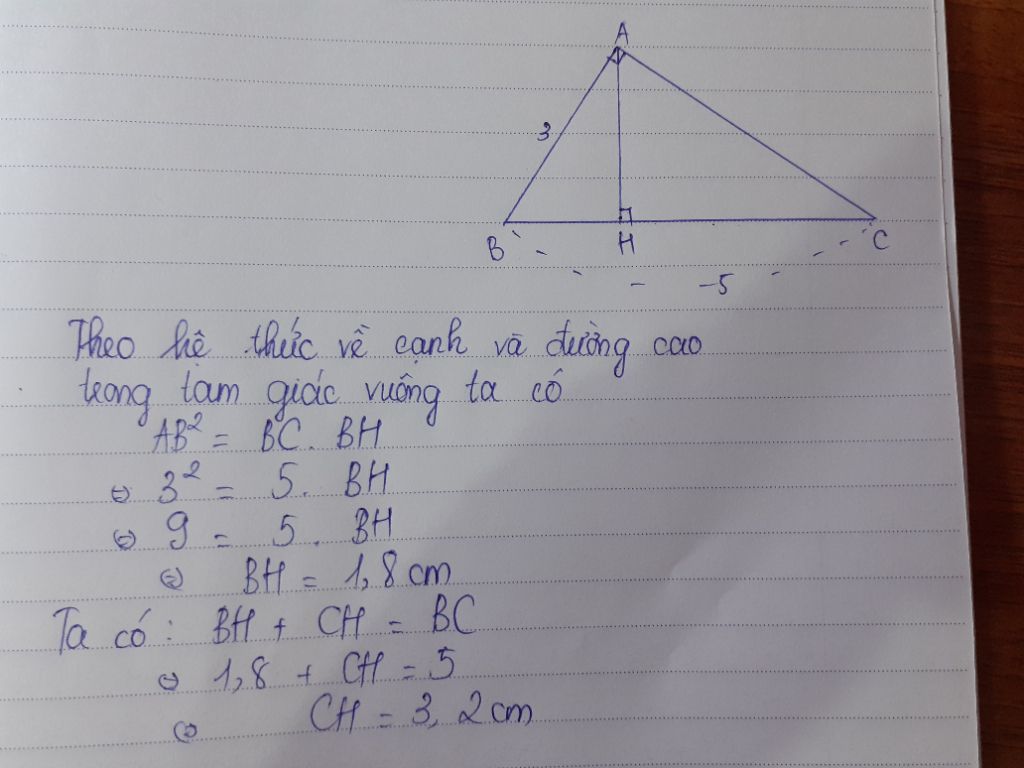 A
3
B
H
C
5
Theo hệ thức về cạnh và đường cao
trong tam giác vuông ta có
AB² = BC. BH
⇔ 3² = 5. BH
⇔ 9 = 5. BH
⇔ BH = 1,8 cm
Ta có: BH + CH = BC
⇔ 1,8 + CH = 5
⇔ CH = 3,2 cm